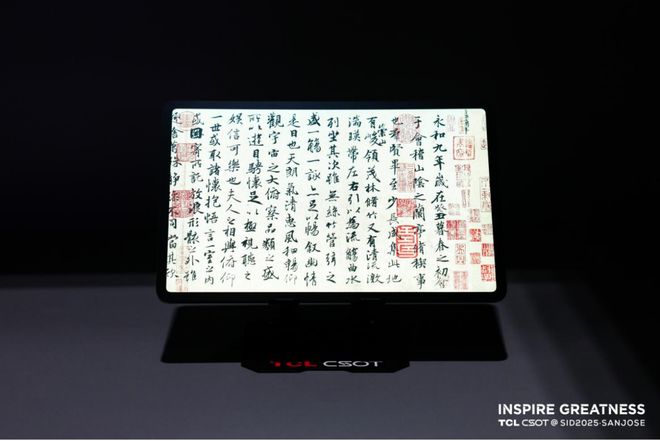 永和九年歲在癸丑暮春之初會
于會稽山陰之蘭亭脩禊事
也羣賢畢至少長咸集此地
有崇山峻領茂林脩竹又有清流激
湍暎帶左右引以為流觴曲水
列坐其次雖無絲竹管弦之
盛一觴一詠亦足以暢敘幽情
是日也天朗氣清惠風和暢仰
觀宇宙之大俯察品類之盛
所以遊目騁懷足以極視聽之
娛信可樂也夫人之相與俯仰
一世或取諸懷抱悟言一室之內
或因寄所託放浪形骸之外雖
趣舍萬殊靜躁不同當其欣
TCL CSOT
INSPIRE GREATNESS
TCL CSOT @ SID2025·SANJOSE